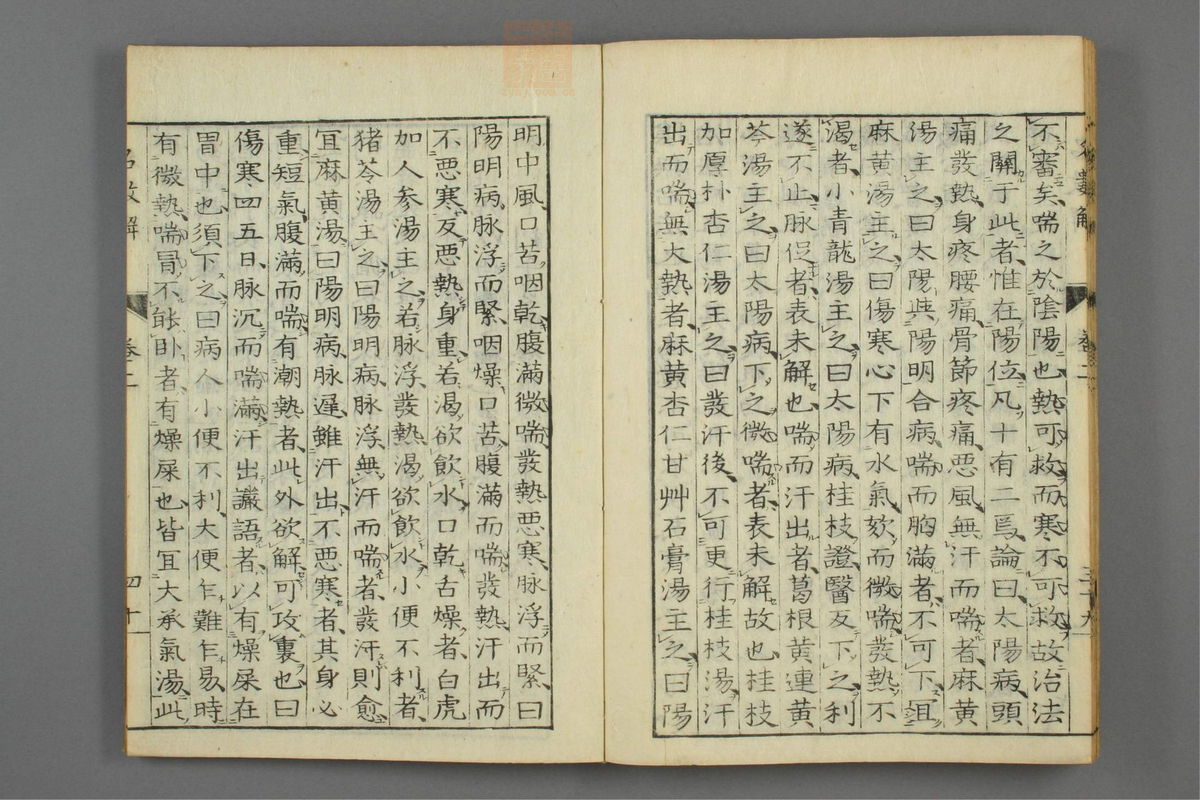 不審矣喘之於陰陽也熱可救而寒不可救故治法
之關于此者惟在陽位凡十有二焉論曰太陽病頭
痛發熱身疼腰痛骨節疼痛惡風無汗而喘者麻黃
湯主之曰太陽與陽明合病喘而胸滿者不可下宜
麻黃湯主之曰傷寒心下有水氣欬而微喘發熱不
渴者小青龍湯主之曰太陽病桂枝證醫反下之利
遂不止脉促者表未解也喘而汗出者葛根黃連黃
芩湯主之曰太陽病下之微喘者表未解故也桂枝
加厚朴杏仁湯主之曰發汗後不可更行桂枝湯汗
出而喘無大熱者麻黃杏仁甘艸石膏湯主之曰陽
明中風口苦咽乾腹滿微喘發熱惡寒脉浮而緊曰
陽明病脉浮而緊咽燥口苦腹滿而喘發熱汗出而
不惡寒反惡熱身重若渴欲飲水口乾舌燥者白虎
加人參湯主之若脉浮發熱渴欲飲水小便不利者
猪苓湯主之曰陽明病脉浮無汗而喘者發汗則愈
宜麻黃湯曰陽明病脉遲雖汗出不惡寒者其身必
重短氣腹滿而喘有潮熱者此外欲解可攻裏也曰
傷寒四五日脉沉而喘滿汗出讝語者以有燥屎在
胃中也須下之曰病人小便不利大便乍難乍易時
有微熱喘冒不能卧者有燥屎也皆宜大承氣湯此
名數解
卷二
四十